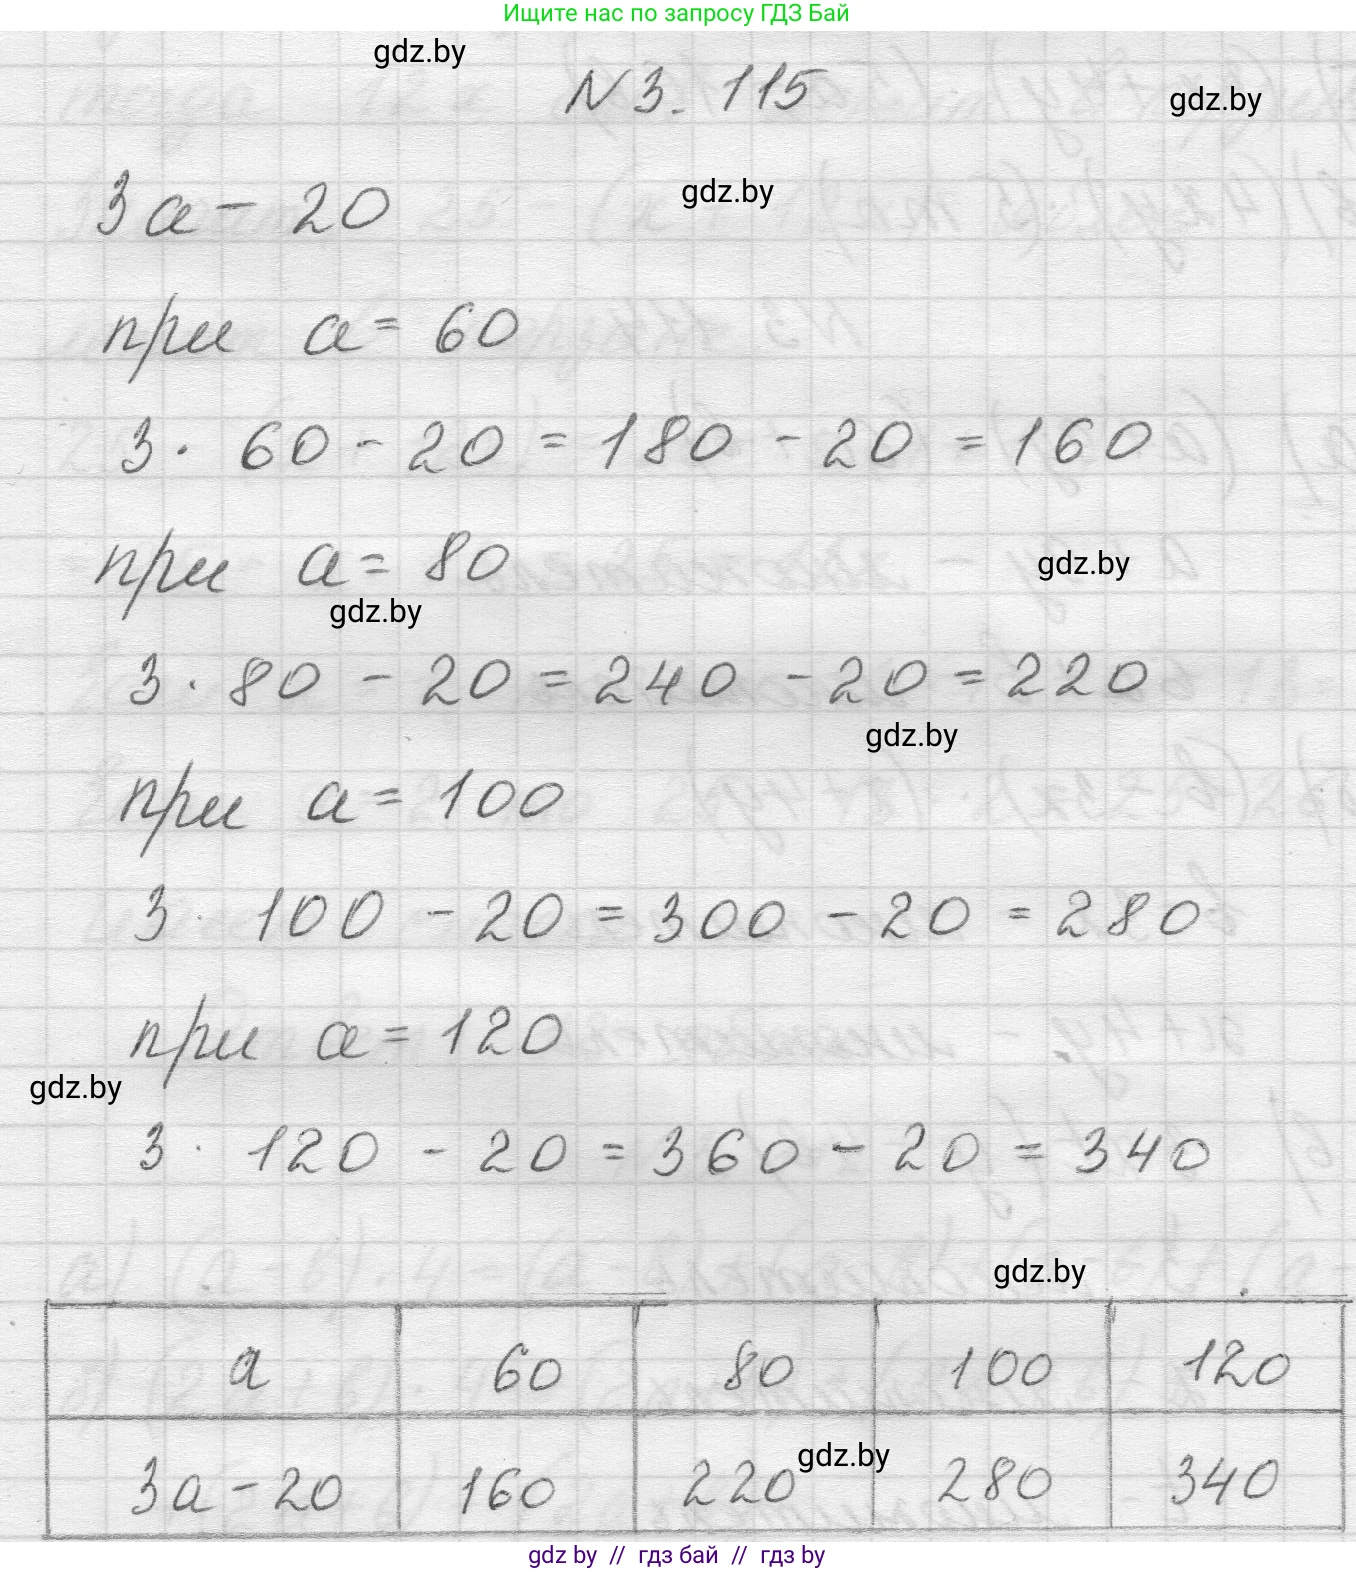 Ищите нас по запросу ГДЗ Бай
gdz.by
N 3. 115
gdz.by
3a - 20
gdz.by
при a = 60
3 · 60 - 20 = 180 - 20 = 160
при a = 80
gdz.by
gdz.by
3 · 80 - 20 = 240 - 20 = 220
gdz.by
при a = 100
3 · 100 - 20 = 300 - 20 = 280
при a = 120
gdz.by
3 · 120 - 20 = 360 - 20 = 340
gdz.by
a 60 80 100 120
gdz.by
3a - 20 160 220 280 340
gdz by // гдз бай // гдз by